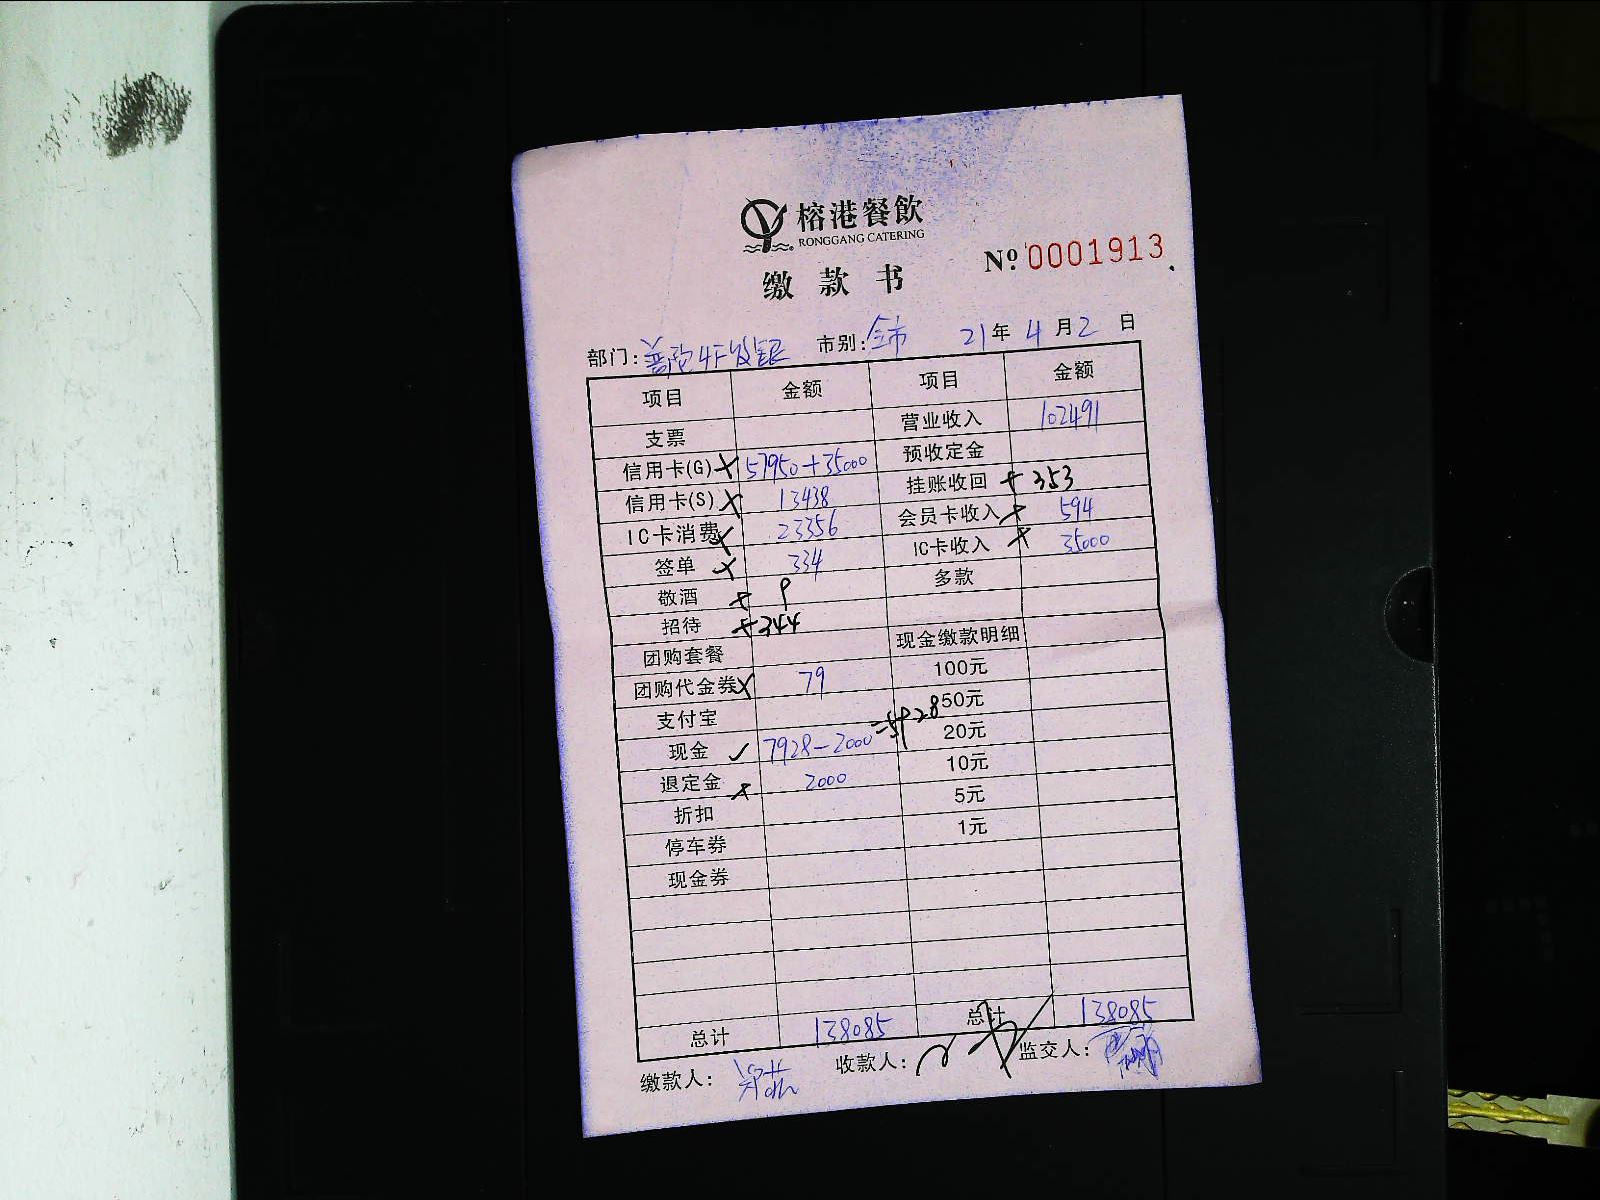 榕港餐飲
RONGGANG CATERING
缴款书 Nº 0001913
部门: 普陀4F发银 市别: 全市 21年4月2日
项目 金额 项目 金额
支票 营业收入 102491
信用卡(G) × 57950+35000 预收定金
信用卡(S) × 13438 挂账收回 + 353
IC卡消费 × 23356 会员卡收入 × 594
签单 × 334 IC卡收入 × 35000
敬酒 × 9 多款
招待 +344 现金缴款明细
团购套餐 100元
团购代金券 × 79 50元
支付宝 20元
现金 ✓ 7928-2000 =5928 10元
退定金 × 2000 5元
折扣 1元
停车券
现金券
总计 138085 总计 138085
缴款人: 收款人: 监交人: